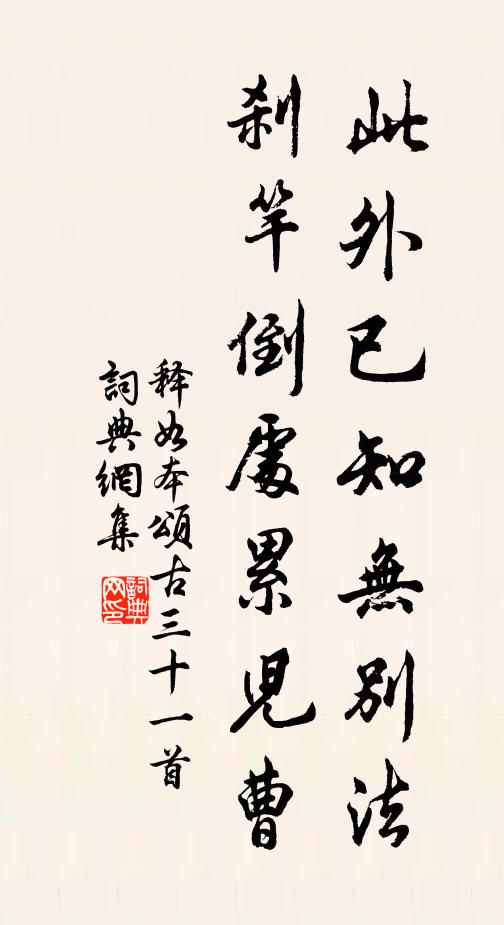 此外已知無別法
刹竿倒處累児曹
释如本頌古三十一首
詞典網集
詞典网印